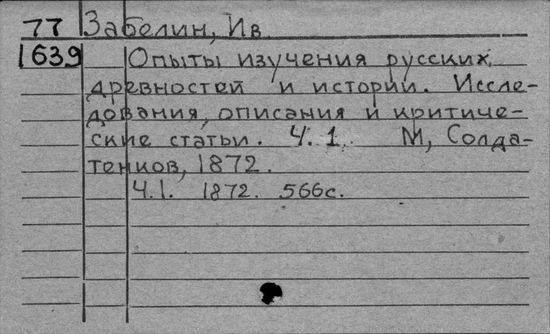 77 Забелин, Ив.
1639 Опыты изучения русских
древностей и истории. Иссле-
дования, описания и критиче-
ские статьи. Ч. 1. М, Солда-
тенков, 1872.
Ч.1. 1872. 566с.